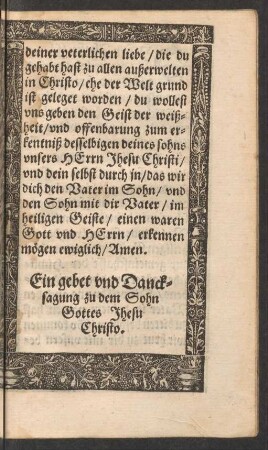 deiner veterlichen liebe / die du
gehabt hast zu allen außerwelten
in Christo / ehe der Welt grund
ist geleget worden / du wollest
vns geben den Geist der weiß-
heit / vnd offenbarung zum er-
kentniß desselbigen deines sohns
vnsers HErrn Jhesu Christi /
vnd dein selbst durch jn / das wir
dich den Vater im Sohn / vnd
den Sohn mit dir Vater / im
heiligen Geiste / einen waren
Gott vnd HErrn / erkennen
mögen ewiglich / Amen.
Ein gebet vnd Danck-
sagung zu dem Sohn
Gottes Jhesu
Christo.